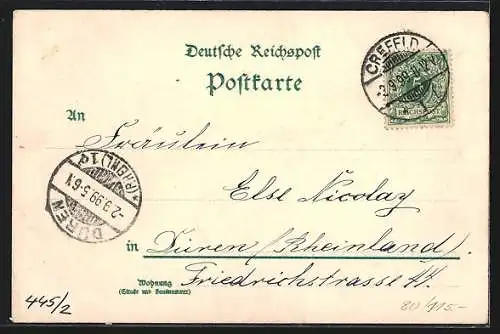 Deutsche Reichspost
Postkarte
CREFELD
2.9.99
REICHSPOST
An
Fräulein
Else Nicolay
(RHGNL) 1d
-2.9.99.5-6N
DÜREN
in Düren (Rheinland).
Friedrichstrasse
Wohnung
(Straße und Hausnummer)
445/2
80/115.-